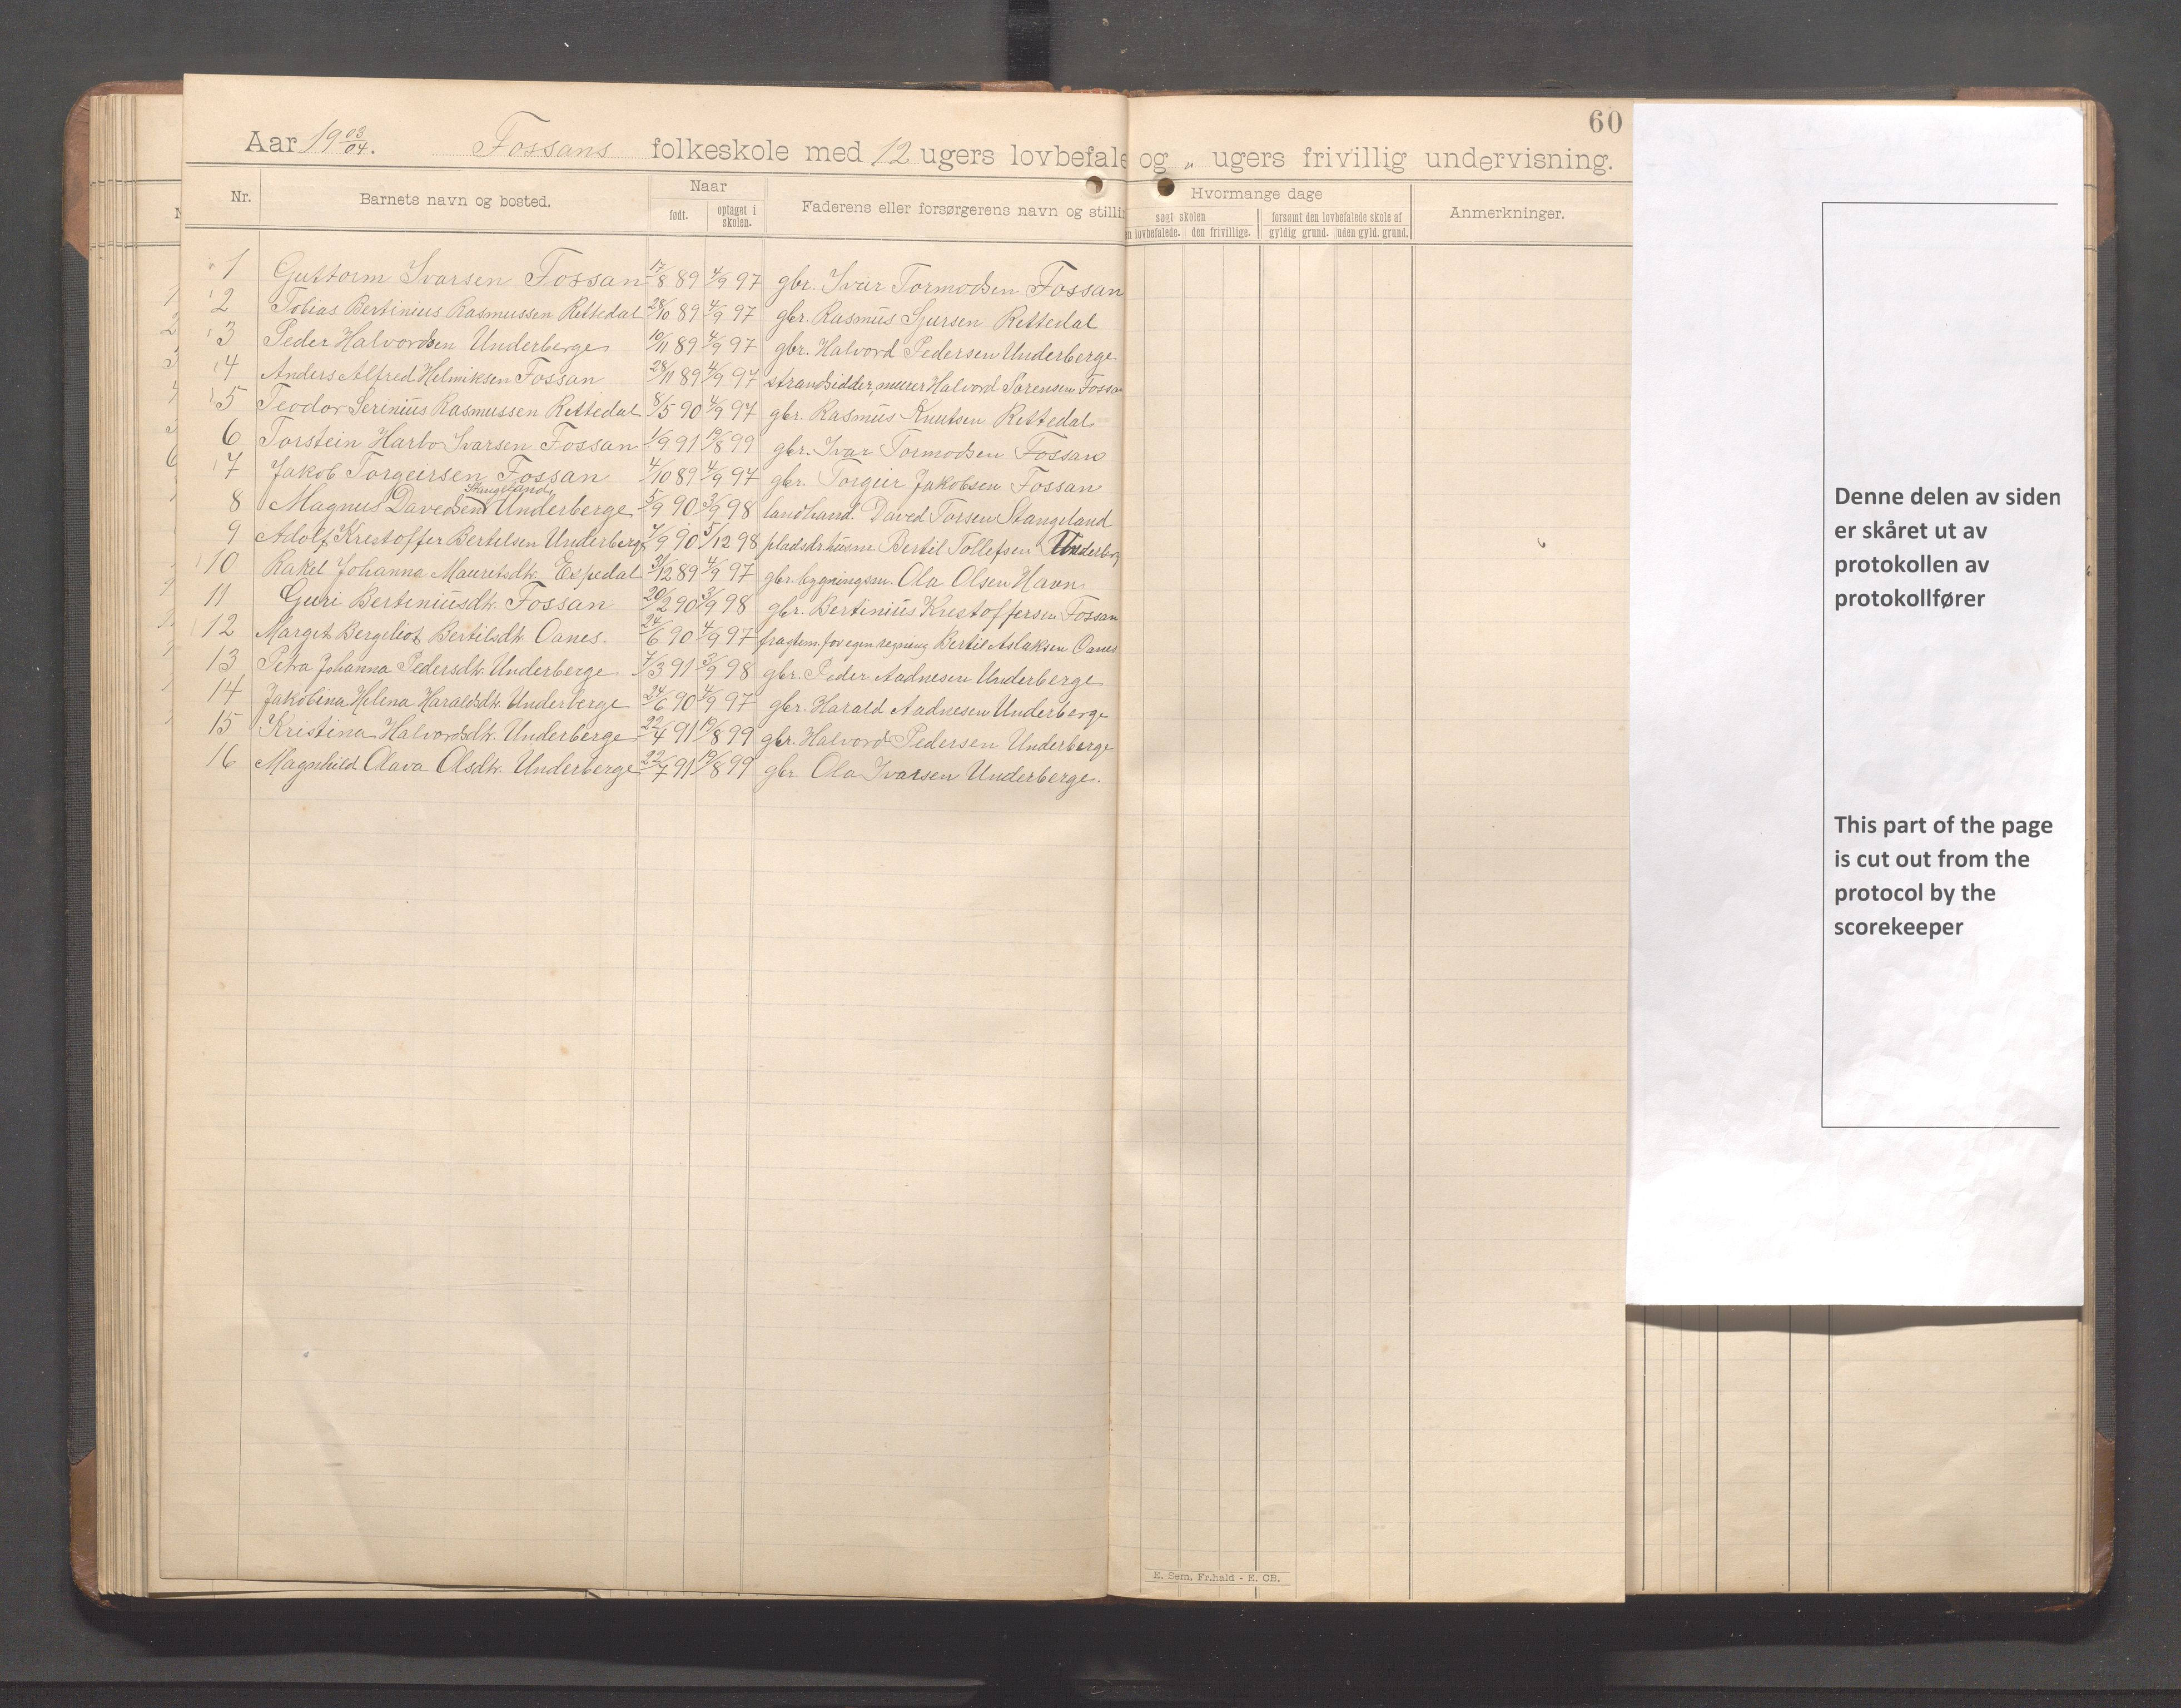 60
Aar 19 03/04. Fossans folkeskole med 12 ugers lovbefale og „ ugers frivillig undervisning.
Nr. Barnets navn og bosted. Naar Faderens eller forsørgerens navn og stillin Hvormange dage Anmerkninger.
født. optaget i skolen. søgt skolen forsømt den lovbefalede skole af
en lovbefalede. den frivillige. gyldig grund. uden gyld. grund.
1 Guttorm Ivarsen Fossan 17/8 89 4/9 97 gbr. Ivar Tormodsen Fossan
2 Tobias Bertinius Rasmussen Rettedal 28/10 89 4/9 97 gbr. Rasmus Sjursen Rettedal
3 Peder Halvordsen Underberge 10/11 89 4/9 97 gbr. Halvord Pedersen Underberge
4 Anders Alfred Helmiksen Fossan 28/11 89 4/9 97 strandsidder, murer Halvord Sørensen Fossan
5 Teodor Serinius Rasmussen Rettedal 8/5 90 4/9 97 gbr. Rasmus Knutsen Rettedal
6 Torstein Harbo Ivarsen Fossan 1/9 91 19/8 99 gbr. Ivar Tormodsen Fossan
7 Jakob Torgeirsen Fossan 4/10 89 4/9 97 gbr. Torgeir Jakobsen Fossan
Stangeland
8 Magnus Davedsen Underberge 5/9 90 3/9 98 landhand. Daved Torsen Stangeland
9 Adolf Krestoffer Bertelsen Underberge 7/9 90 5/12 98 pladsdr. husm. Bertil Tollefsen Underberg
10 Rakel Johanna Mauretsdtr. Espedal 31/12 89 4/9 97 gbr. bygningssn. Ola Olsen Havn
11 Guri Bertiniusdtr. Fossan 20/2 90 3/9 98 gbr. Bertinius Krestoffersen Fossan
12 Margit Bergeliot Bertilsdtr. Oanes. 24/6 90 4/9 97 fragtem. for egen regning Bertil Aslaksen Oanes
13 Petra Johanna Pedersdtr. Underberge 7/3 91 3/9 98 gbr. Peder Aadnesen Underberge
14 Jakobina Helena Haraldsdtr. Underberge 24/6 90 4/9 97 gbr. Harald Aadnesen Underberge
15 Kristina Halvordsdtr. Underberge 22/4 91 19/8 99 gbr. Halvord Pedersen Underberge
16 Magnhild Olava Olsdtr. Underberge 22/7 91 19/8 99 gbr. Ola Ivarsen Underberge.
E. Sem, Fr.hald - E. CB.
Denne delen av siden
er skåret ut av
protokollen av
protokollfører
This part of the page
is cut out from the
protocol by the
scorekeeper